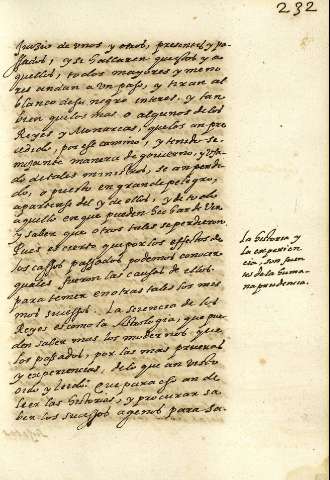 232
juicio de unos y otros, presentes y pa-
ssados, y se hallaren que estos y a-
quellos, todos mayores y meno
res andan a un passo, y tiran al
blanco de su negro interes, y tan
bien que los mas o algunos de los
Reyes y Monarcas, que los an pre
cedido, por esse camino, y
semejante manera de govierno, y
de tales ministros, se an perdi-
do, o puesto en grande peligro,
apartense del y de ellos, y de todo
aquello en que pueden
y saber que otros tales se perdieron.
Pues es cierto que por los effectos de
los cassos passados podemos conocer
quales fueron las causas de ellos
para temer en otras tales los mes
mos sucessos. La sciencia de los
Reyes es como la Astrologia, que pue
den saber mas los modernos, que
los passados, por las mas pruevas
y experiencias, de lo que an visto
oido y leido. Que para esso an de
leer las historias, y procuran sa-
ber los sucessos agenos para sa-
La historia y
la experien
cia, son fuen
tes de la huma-
na prudencia.